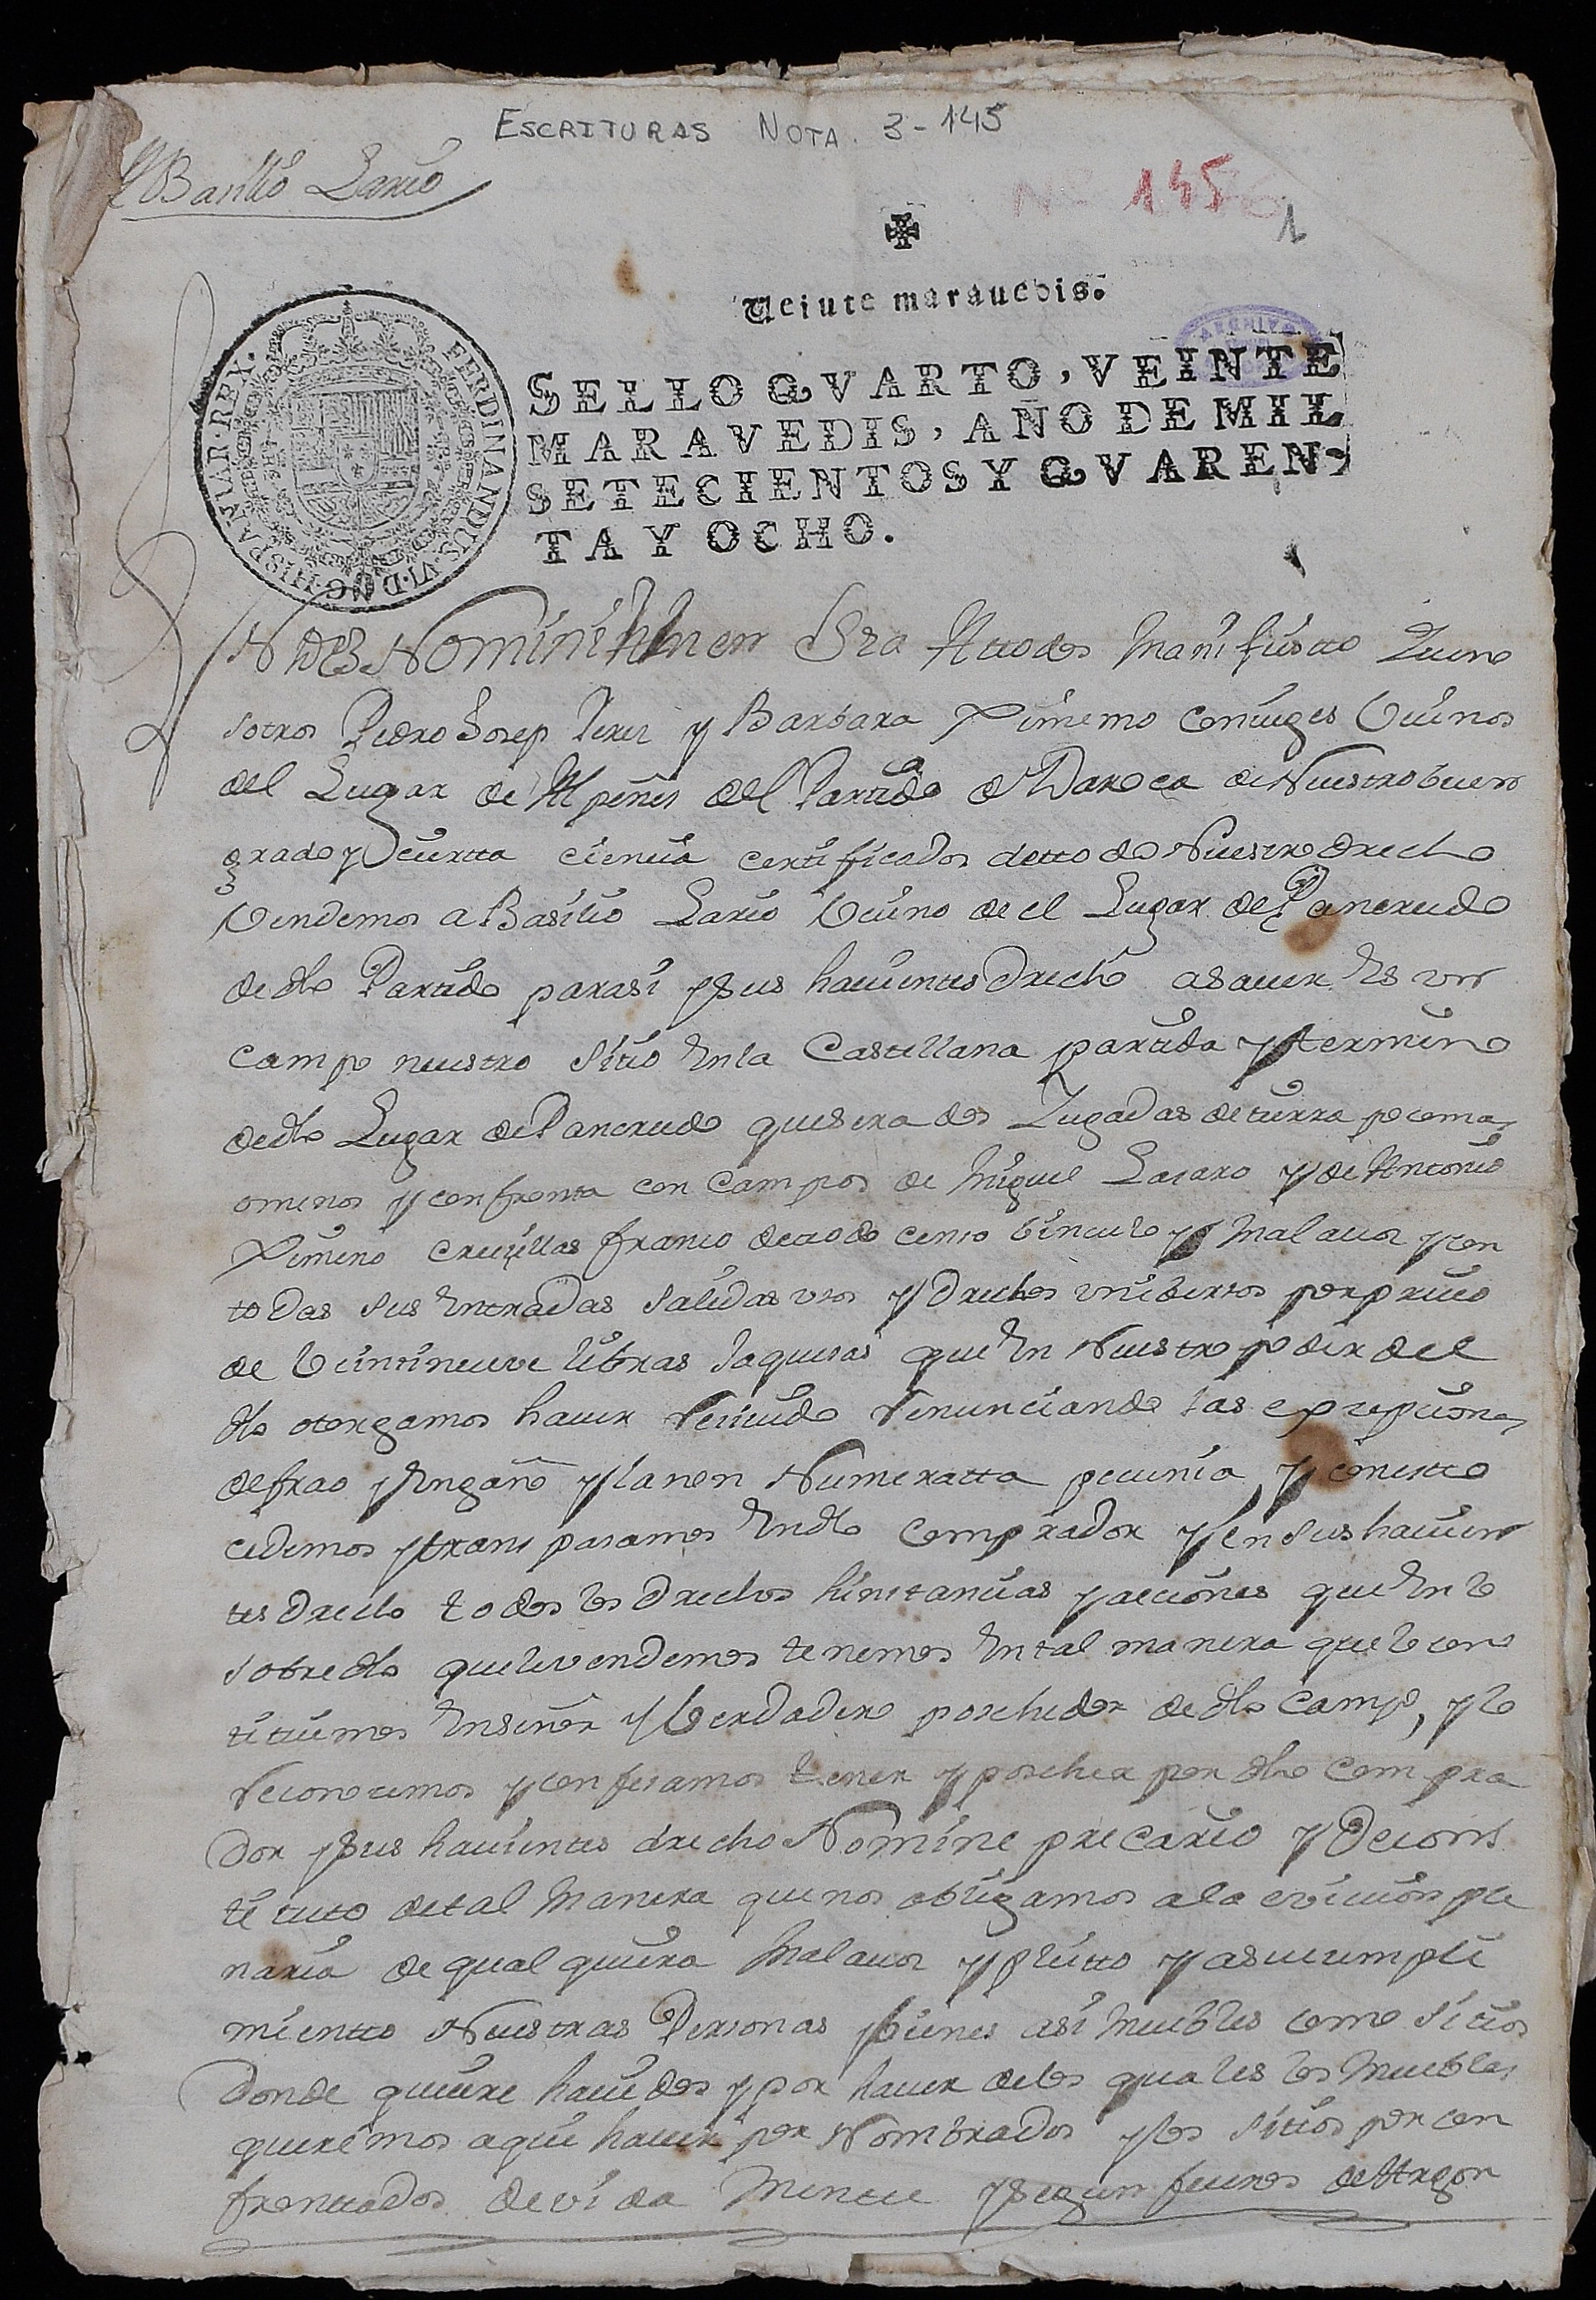 ESCRITURAS NOTA. 3-145
Basilio Lario
Nº 145
1
Veinte marauedis.
ARCHIVO
SELLO QVARTO, VEINTE
MARAVEDIS, AÑO DE MIL
SETECIENTOS Y QVAREN-
TA Y OCHO.
FERDINANDUS·VI·D·G·HISPANIAR·REX·
IN Dei Nomine Amen Sea Attodos Manifiestto Que no
sotros Pedro Josep Perez y Barbara Ximeno Conuiges Vecinos
del Lugar de Alpeñes del Partido de Daroca de Nuestro buen
grado y cierta ciencia certificados detto do Nuestro drecho
Vendemos a Basilio Lario Vecino de el Lugar de Pancrudo
de dho Partido parasi y sus hauientes drecho asauer Es un
campo nuestro sitio En la Castellana partida y termino
de dho Lugar de Pancrudo que sera dos Jugadas de tierra poco mas
o menos y confronta con Campos de Miguel Lazaro y de Antonio
Ximeno Crecillas franco de todo censo binculo y Mal auoz y con
todas sus Entradas salidas usos y drechos unibersos por precio
de Veintinueve libras Jaquesas que En Nuestro poder del
dho otorgamos hauer Reciuido Renunciando las excepciones
de frao y Engaño y la non Numeratta pecunia y con estto
cedemos y transpasamos En dho comprador y en sus hauien
tes drecho todos los drechos hinstancias y acciones que En lo
sobredho que le vendemos tenemos En tal manera que lo cons
tituimos En señor y Verdadero poseheder de dho Campo, y lo
Reconocemos y confesamos tener y poseher por dho Compra
dor y sus hauientes drecho Nomine precario y De cons
tituto de tal Manera que nos obligamos a la eviccion ple
naria de qual quiera Mal auoz y pleitto y a su cumpli
mientto Nuestras Personas y bienes asi Muebles como Sitios
donde quiere hauidos y por hauer de los quales los Muebles
queremos aqui hauer por Nombrados y los Sitios por con
frontados devida Mente y Segun fueros de Aragon